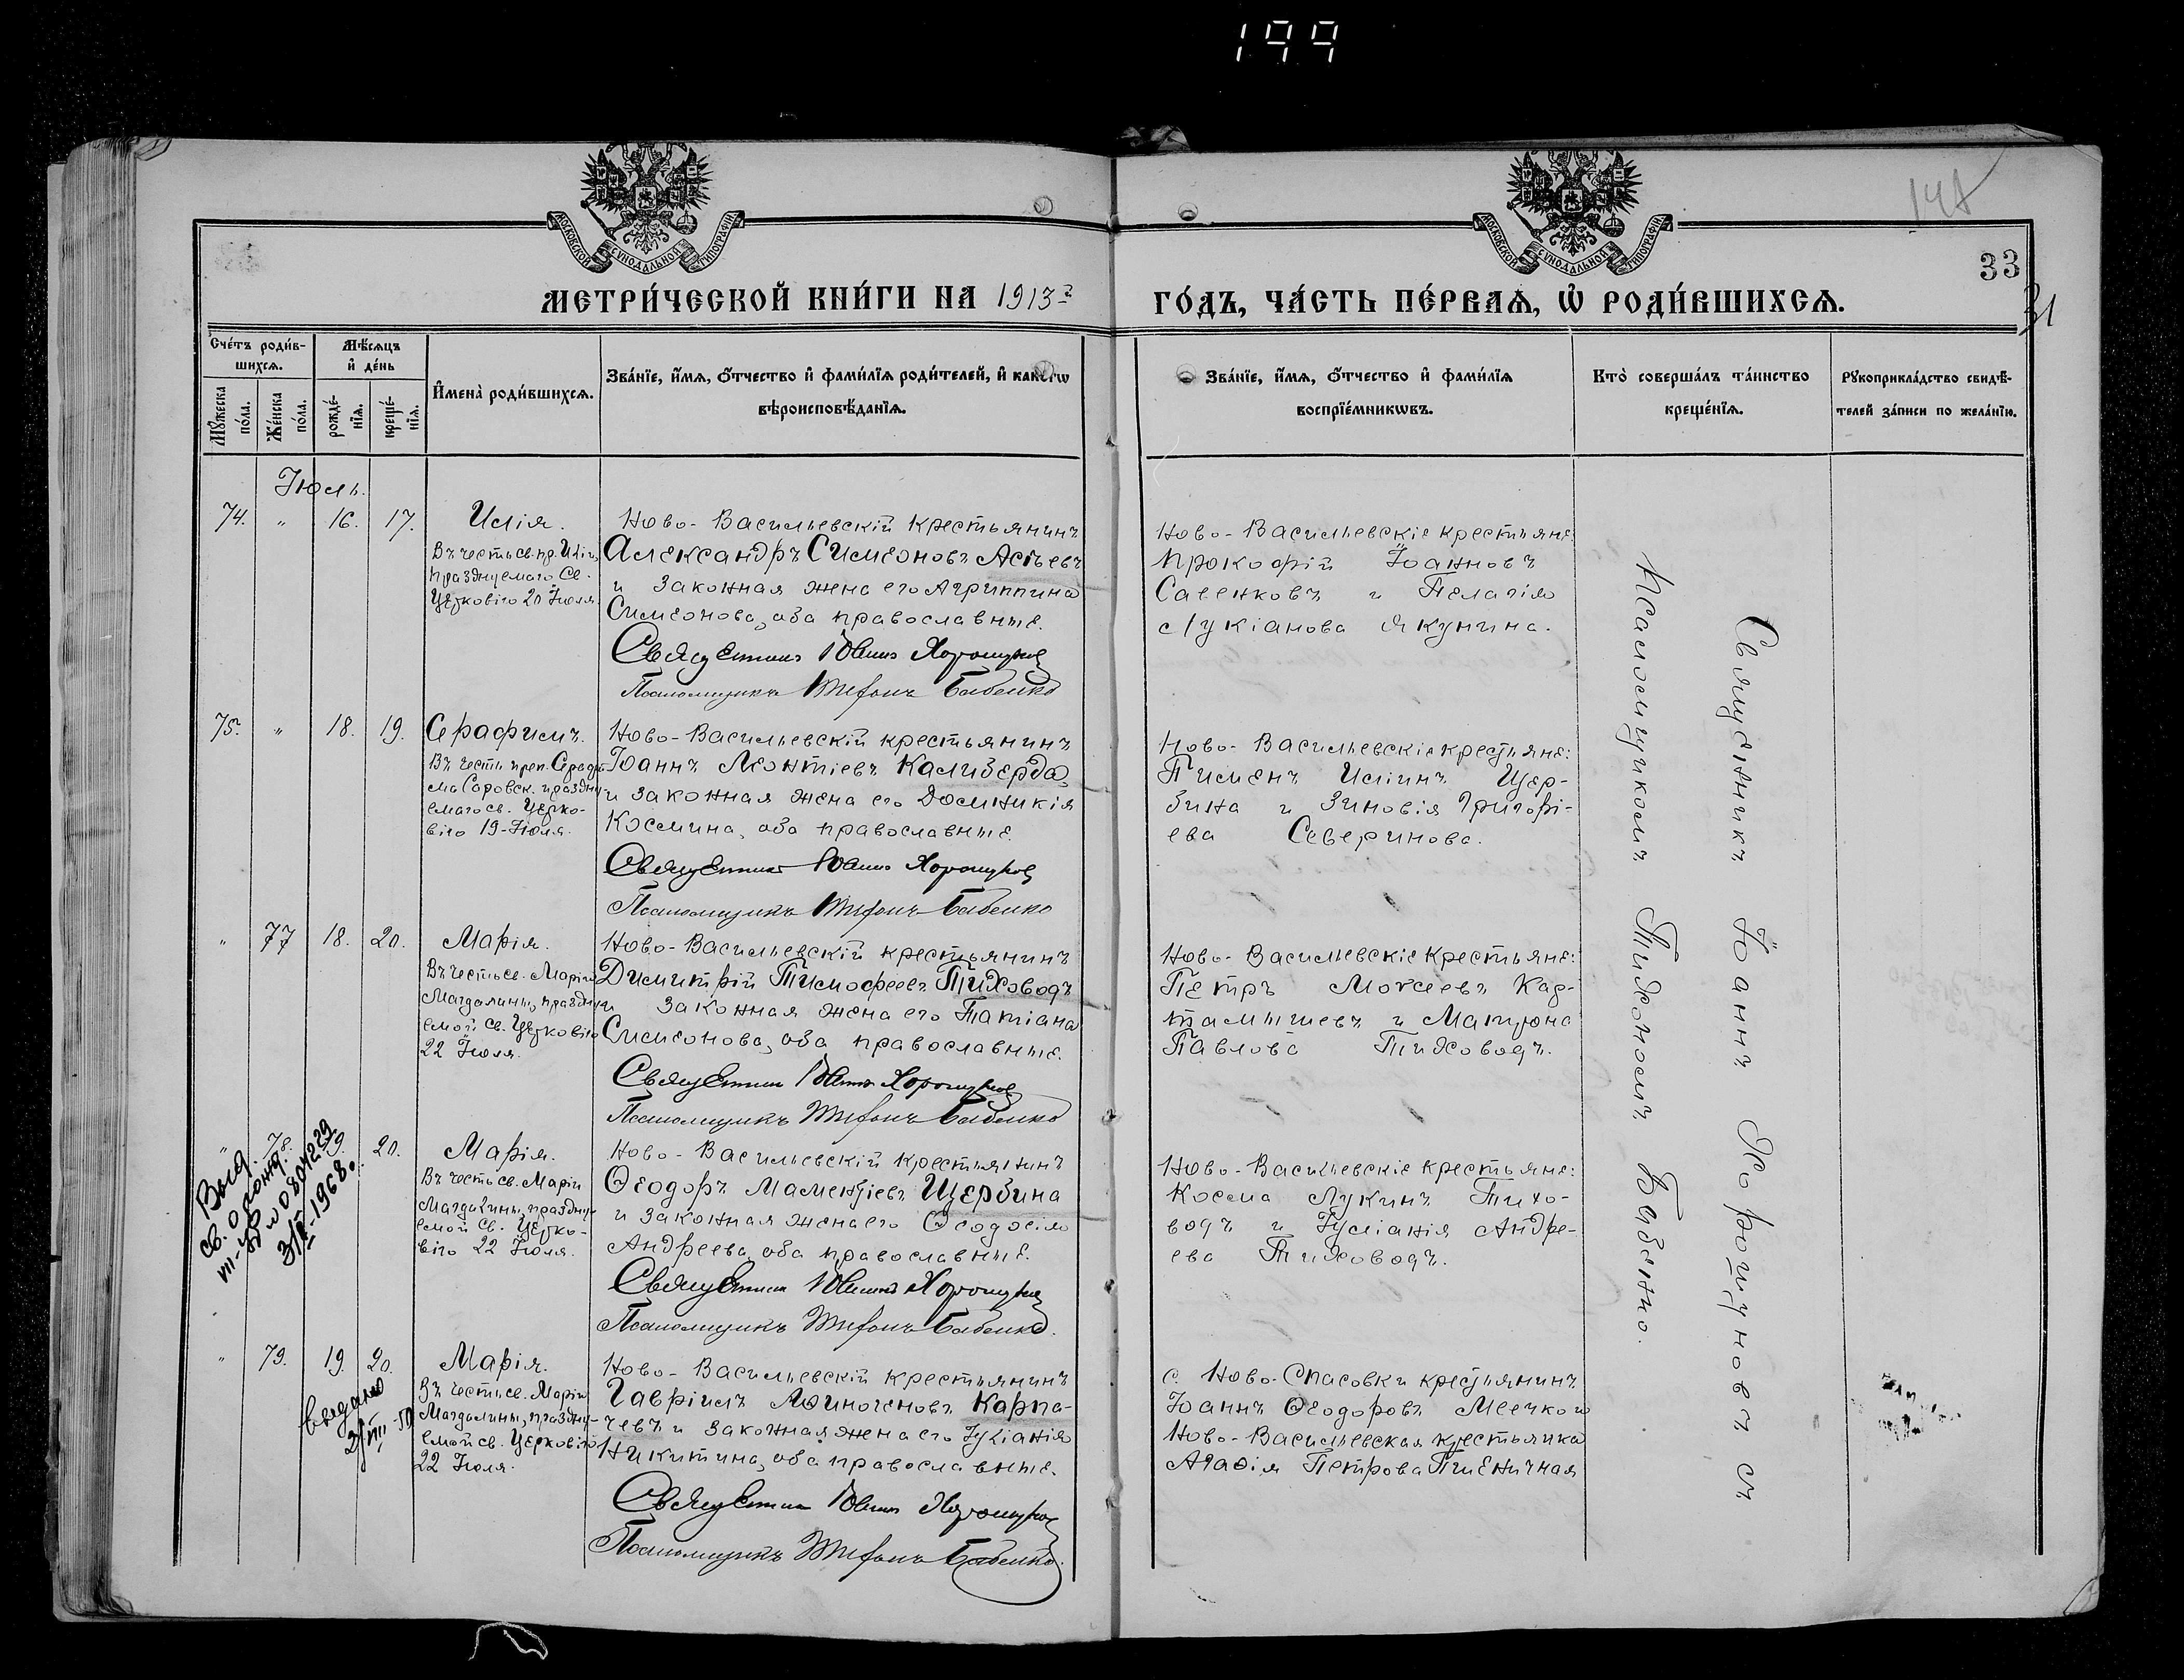 199
МОСКОВСКОЙ СѴНОДАЛЬНОЙ ТИПОГРАФІИ
МОСКОВСКОЙ СѴНОДАЛЬНОЙ ТИПОГРАФІИ
33
31
МЕТРИ́ЧЕСКОЙ КНИ́ГИ НА 1913 ГО́ДЪ, ЧА́СТЬ ПЕ́РВАѦ, Ѡ҆ РОДИ́ВШИХСѦ.
Сче́тъ роди́в-
шихсѧ.
Мꙋ́жеска
по́ла.
Же́нска
по́ла.
Мѣ́сѧцъ
и҆ де́нь
рожде́-
нїѧ.
креще́-
нїѧ.
И҆мена̀ роди́вшихсѧ.
Зва́нїе, и҆́мѧ, ѻ҆́тчество и҆ фами́лїѧ роди́телей, и҆ како́гѡ
вѣроисповѣ́данїѧ.
Зва́нїе, и҆́мѧ, ѻ҆́тчество и҆ фами́лїѧ
воспрїе́мникѡвъ.
Кто̀ соверша́лъ та́инство
креще́нїѧ.
Рꙋкоприкла́дство свидѣ́-
телей за́писи по жела́нїю.
Іюль.
74. " 16. 17. Илія.
Въ честь св. пр. Иліи,
празднуемаго Св.
Церковію 20 Іюля
Ново-Васильевскій крестьянинъ
Александръ Симеоновъ
и законная жена его Агриппина
Симеонова, оба православные.
Священникъ Іоаннъ Хорошунов
Псаломщикъ Тихонъ Бабенко
Ново-Васильевскіе крестьяне:
Прокофій Іоанновъ
Савенковъ и Пелагія
Лукіанова Якунина.
75. " 18. 19. Серафимъ.
Въ честь преп. Серафи-
ма Саровск. праздну-
емаго св. Церко-
вію 19-Іюля.
Ново-Васильевскій крестьянинъ
Іоаннъ Леонтіевъ Калиберда
и законная жена его Домникія
Космина, оба православные.
Священникъ Іоаннъ Хорошунов
Псаломщикъ Тихонъ Бабенко
Ново-Васильевскіе крестьяне:
Пименъ Иліинъ Щер-
бина и Зиновія Григорі-
ева Северинова.
" 77 18. 20. Марія.
Въ честь св. Маріи
Магдалины, праздну-
емой св. Церковію
22 Іюля.
Ново-Васильевскій крестьянинъ
Димитрій Тимофеевъ Тиховодъ
и законная жена его Татіана
Симеонова, оба православные.
Священникъ Іоаннъ Хорошунов
Псаломщикъ Тихонъ Бабенко
Ново-Васильевскіе крестьяне:
Петръ Моисеевъ Кар-
тамышевъ и Матрона
Павлова Тиховодъ.
" 78. 19. 20. Марія.
Въ честь св. Маріи
Магдалины, праздну-
емой св. Церко-
вію 22 Іюля.
Ново-Васильевскій крестьянинъ
Ѳеодоръ Щербина
и законная жена его Ѳеодосія
Андреева, оба православные.
Священникъ Іоаннъ Хорошунов
Псаломщикъ Тихонъ Бабенко.
Ново-Васильевскіе крестьяне:
Косма Лукинъ Тихо-
водъ и Іуліанія Андре-
ева Тиховодъ.
Выд.
св. о рожд.
1968
" 79. 19. 20. Марія.
Въ честь св. Маріи
Магдалины, праздну-
емой св. Церковію
22 Іюля.
выдано
Ново-Васильевскій крестьянинъ
Гавріилъ Карпа-
чевъ и законная жена его Іуліанія
Никитина, оба православные.
Священникъ Іоаннъ Хорошунов
Псаломщикъ Тихонъ Бабенко.
с. Ново-Спасовки крестьянинъ
Іоаннъ Ѳеодоровъ
Ново-Васильевская крестьянка
Агафія Петрова Пшеничная
Священникъ Іоаннъ Хорошуновъ съ
Псаломщикомъ Тихономъ Бабенко.